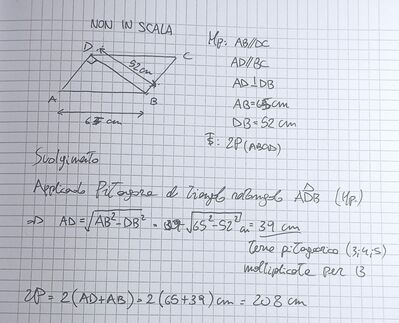 NON IN SCALA
D
C
52 cm
A
B
65 cm
Hp: AB//DC
AD//BC
AD⊥DB
AB=65cm
DB=52 cm
2P(ABCD)
Svolgimento
Applicando Pitagora al triangolo rettangolo ADB (Hp.)
⇒ AD=√AB²-DB² = √65²-52² cm = 39 cm
Terna pitagorica (3,4,5)
moltiplicata per 13
2P = 2(AD+AB) = 2(65+39) cm = 208 cm